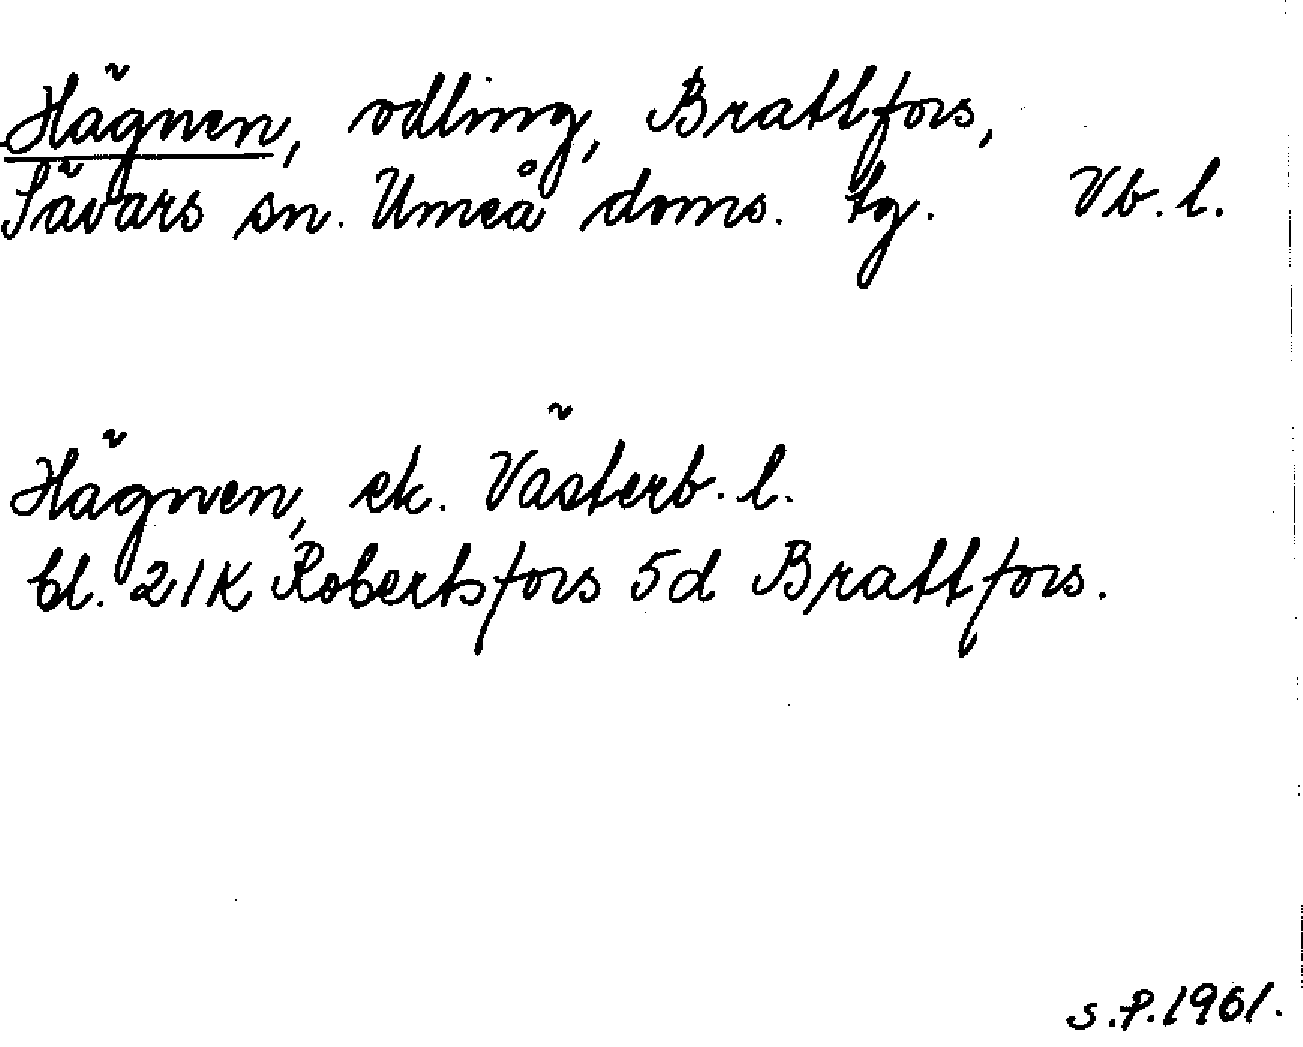 Hägnen, odling, Brattfors,
Sävars sn. Umeå doms. tg. Vb. l.
Hägnen, ek. Västerb. l.
bl. 21K Robertsfors 5d Brattfors.
S.P. 1961.